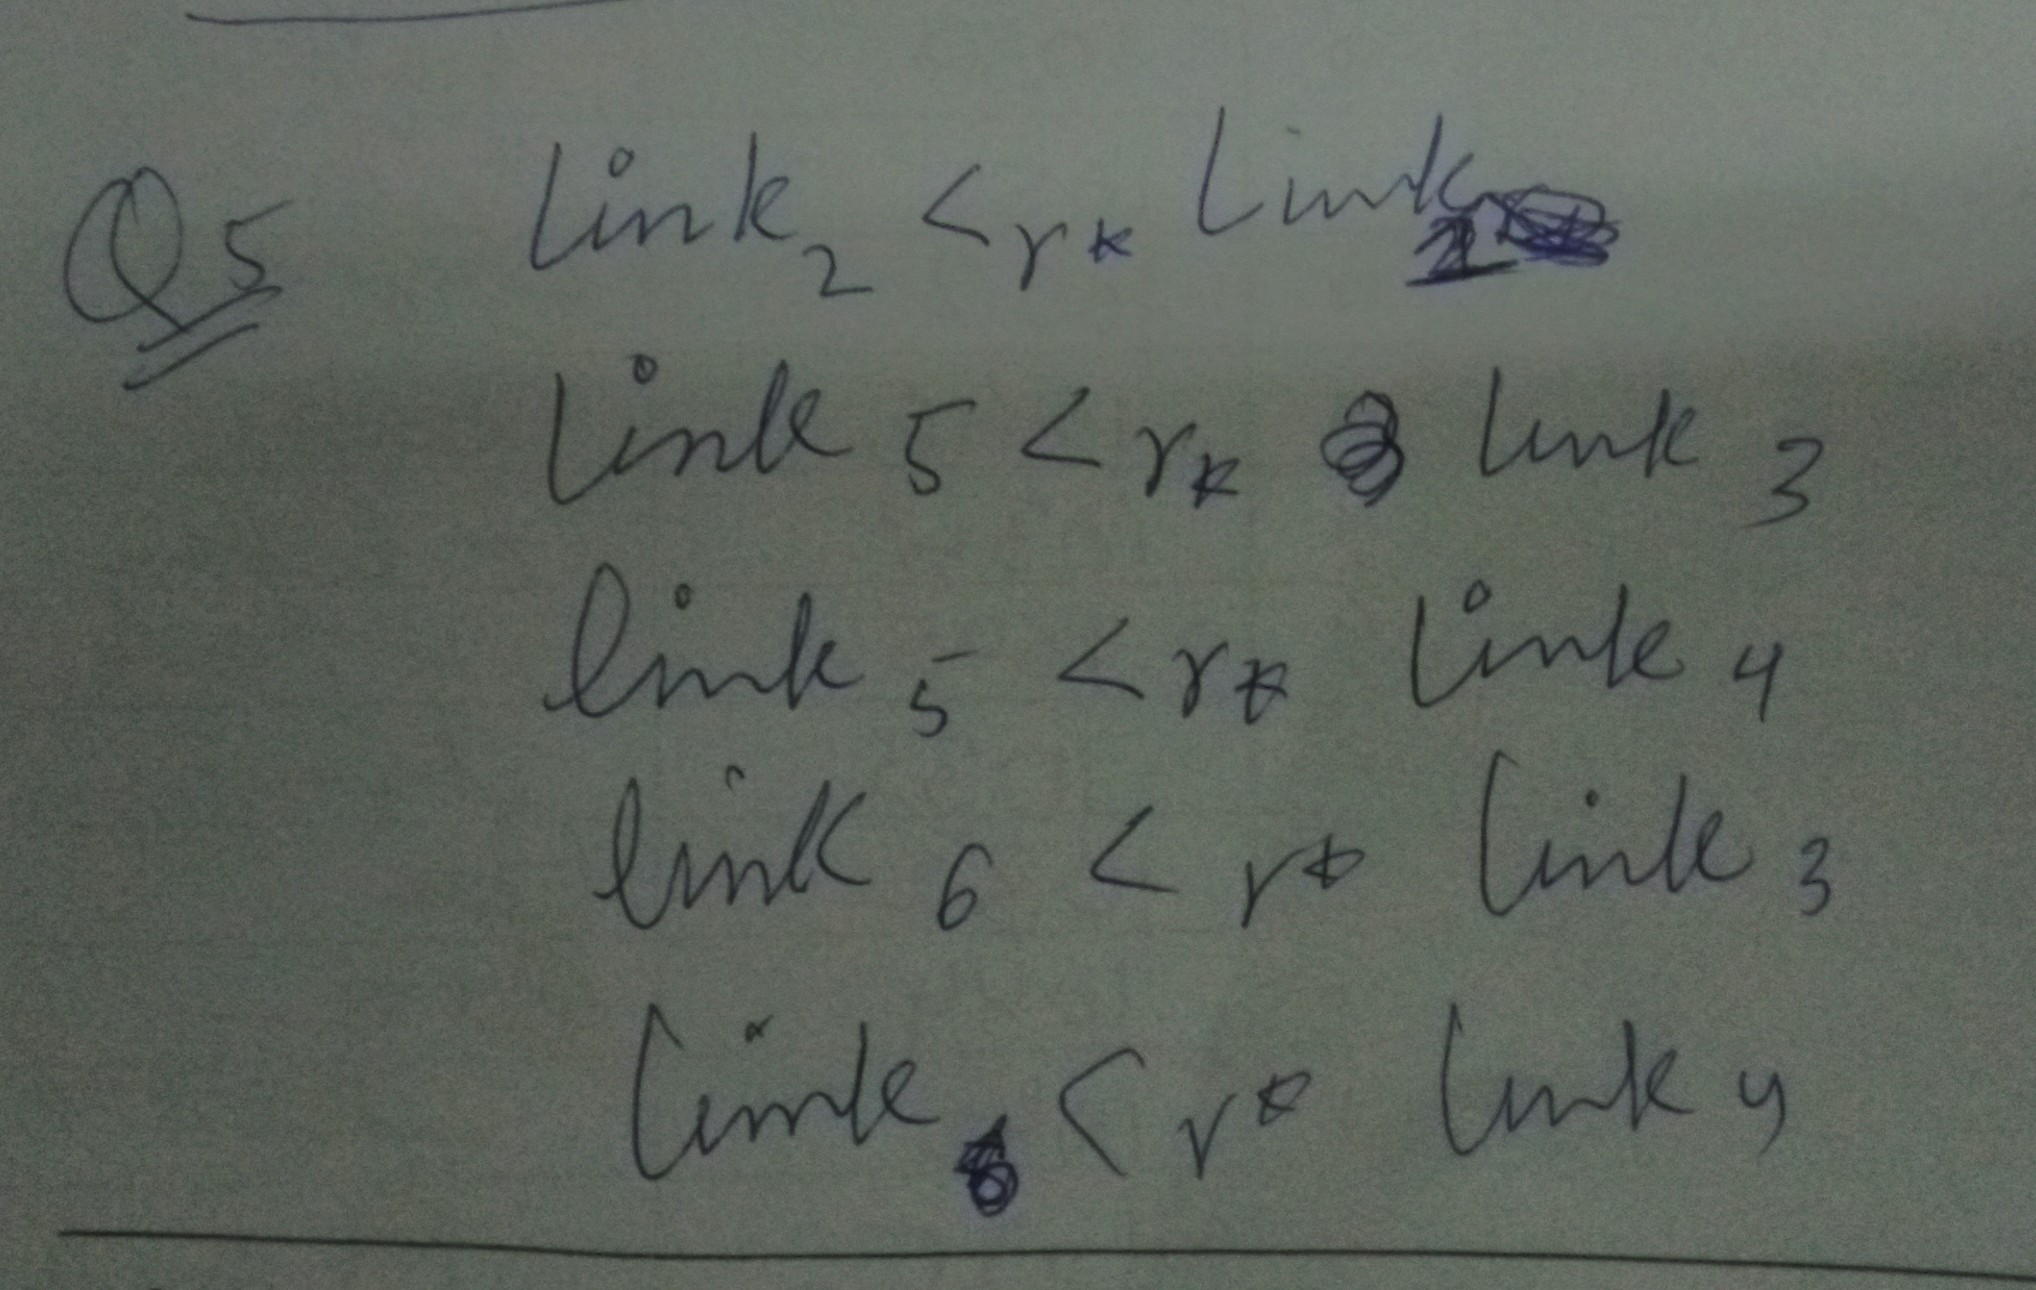 Q5 Link 2 < r* Link 1
Link 5 < r* Link 3
link 5 < r* Link 4
link 6 < r* Link 3
Link 6 < r* Link 4